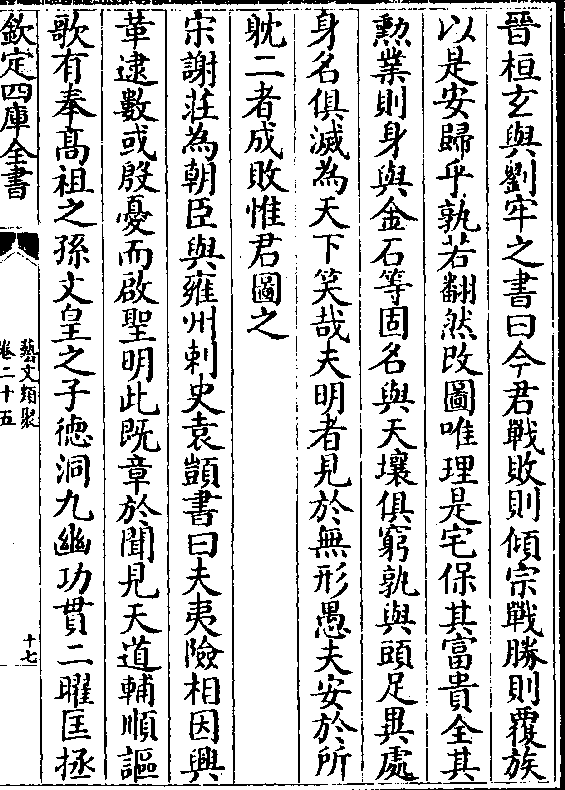 晉桓玄與劉牢之書曰今君戰敗則傾宗戰勝則覆族
以是安歸乎孰若翻然改圖唯理是宅保其富貴全其
勲業則身與金石等固名與天壤俱窮孰與頭足異處
身名俱滅為天下笑哉夫明者見於無形愚夫安於所
躭二者成敗惟君圖之
宋謝莊為朝臣與雍州刺史袁顗書曰夫夷險相因興
革逮數或殷憂而啟聖明此既章於聞見天道輔順謳
歌有奉髙祖之孫文皇之子德洞九幽功貫二曜匡拯
欽定四庫全書
藝文類聚
卷二十五
十七